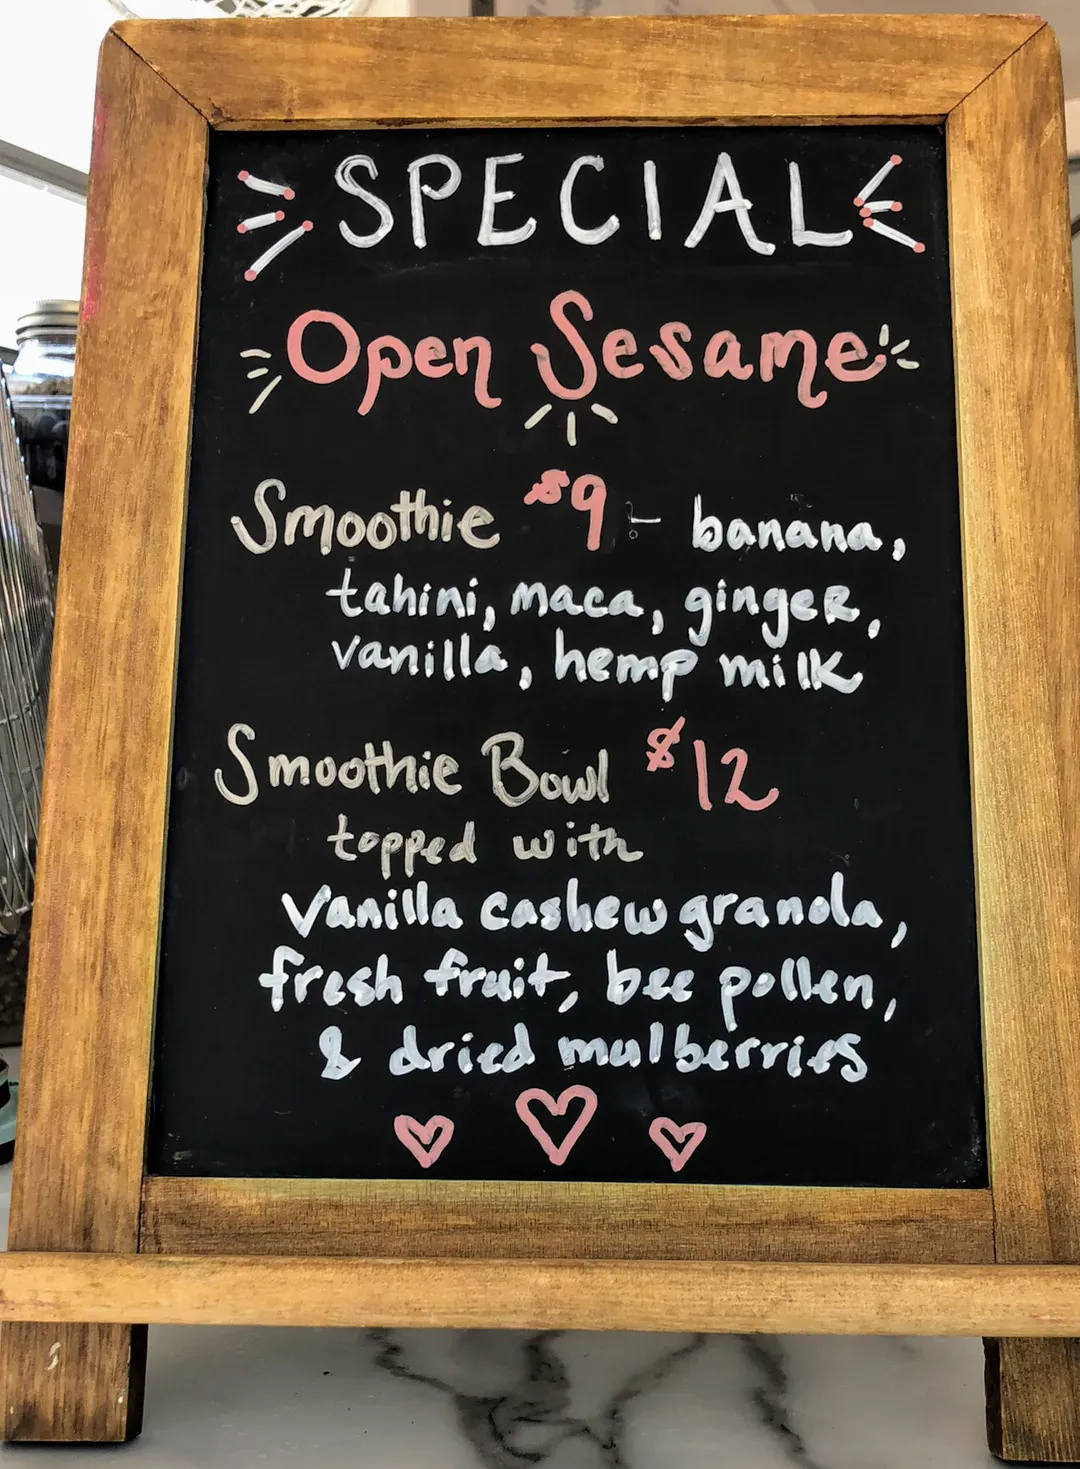 SPECIAL
Open Sesame
Smoothie $9 - banana,
tahini, maca, ginger,
vanilla, hemp milk
Smoothie Bowl $12
topped with
Vanilla cashew granola,
fresh fruit, bee pollen,
& dried mulberries